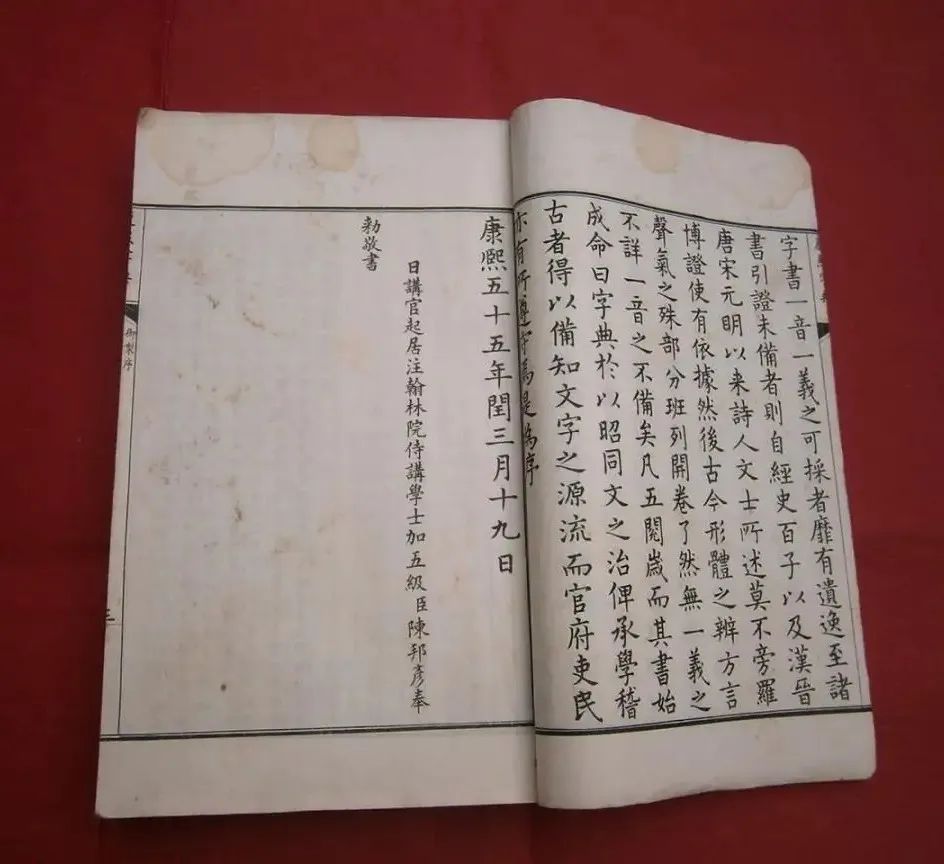 字書一音一義之可採者靡有遺逸至諸
書引證未備者則自經史百子以及漢晉
唐宋元明以來詩人文士所述莫不旁羅
博證使有依據然後古今形體之辨方言
聲氣之殊部分班列開卷了然無一義之
不詳一音之不備矣凡五閱歲而其書始
成命曰字典於以昭同文之治俾承學稽
古者得以備知文字之源流而官府吏民
亦有所遵守焉是為序
康熙五十五年閏三月十九日
日講官起居注翰林院侍講學士加五級臣陳邦彥奉
勅敬書
御製序
三